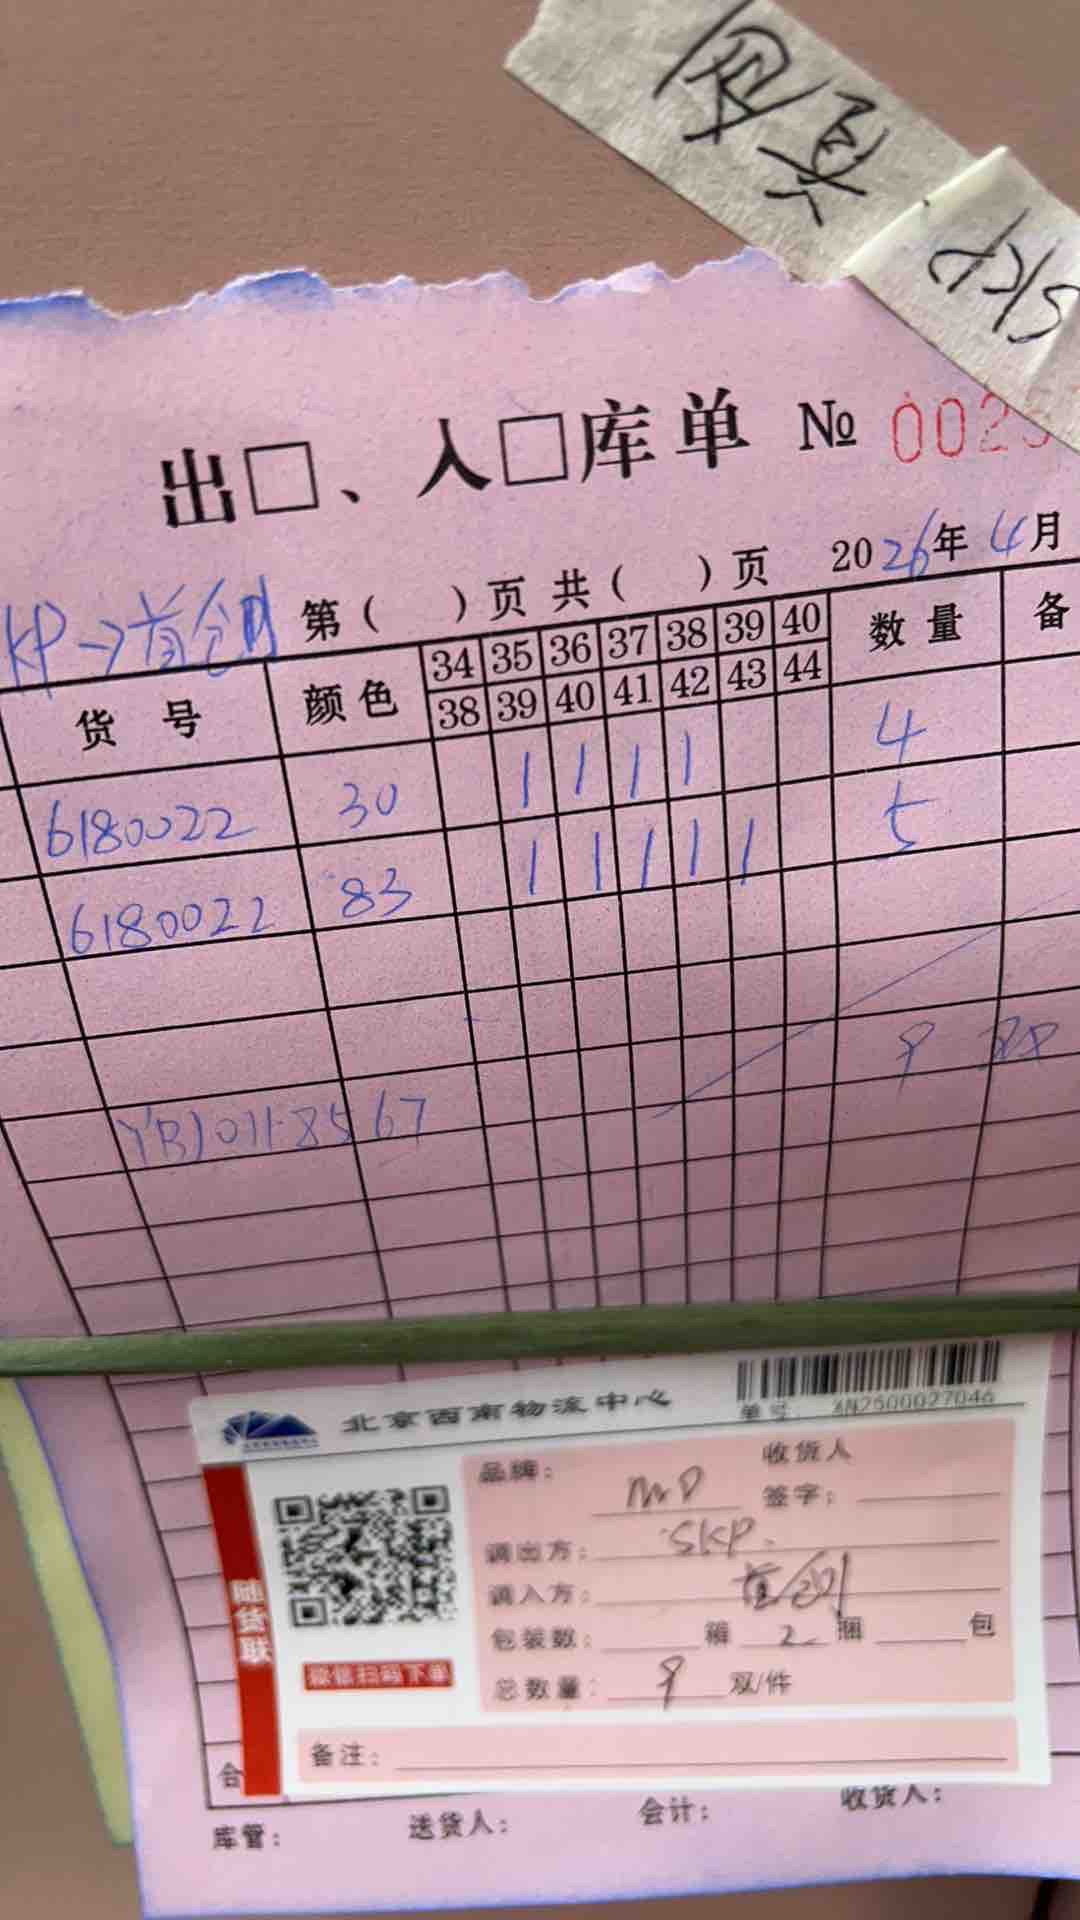 出□、入□库单 № 002
KP→首创 第( )页 共( )页 2026年4月
货号 颜色 34 35 36 37 38 39 40 数量 备
38 39 40 41 42 43 44
6180022 30 1 1 1 1 4
6180022 83 1 1 1 1 1 5
9
北京西南物流中心
单号: XN2500027046
随货联
微信扫码下单
品牌: 收货人
签字:
调出方: SKP
调入方: 首创
包装数: 箱 2 捆 包
总数量: 9 双/件
备注:
合
库管: 送货人: 会计: 收货人: